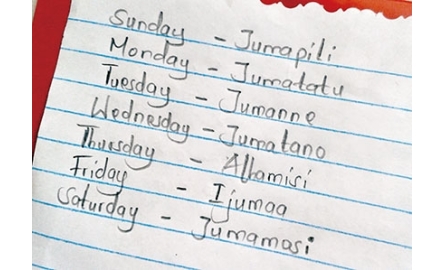 Sunday - Jumapili
Monday - Jumatatu
Tuesday - Jumanne
Wednesday - Jumatano
Thursday - Alhamisi
Friday - Ijumaa
Saturday - Jumamosi